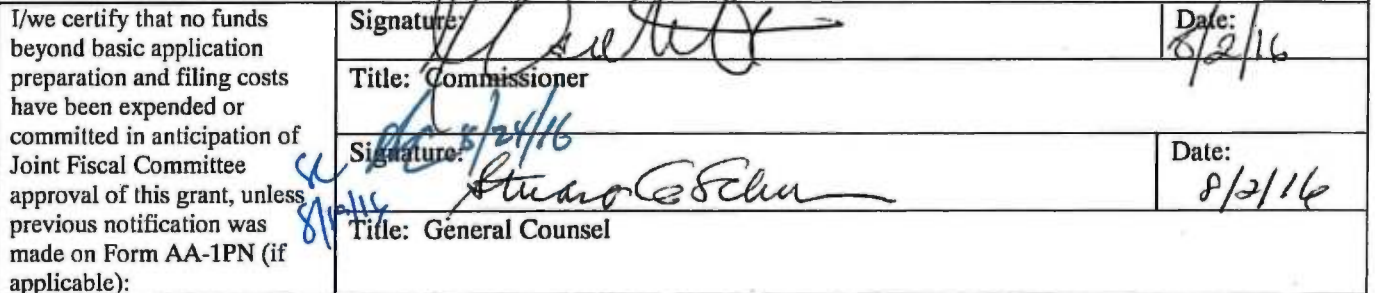 I/we certify that no funds
beyond basic application
preparation and filing costs
have been expended or
committed in anticipation of
Joint Fiscal Committee
approval of this grant, unless
previous notification was
made on Form AA-1PN (if
applicable):
Signature:
Date:
8/2/16
Title: Commissioner
8/24/16
Signature:
Date:
8/2/16
Title: General Counsel